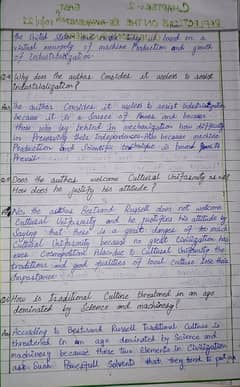 CHAPTER 2
the United States and
virtual monopoly of machine Production and growth
of Industrialization.
Why does the author Consider it useless to resist
industrialization?
the author Considers it useless to resist industrialization
because it is a Source of Power and because
those who lag behind in mechanization how difficulty
in Preserving their Independence. Also because machine
Production and Scientific technique is bound to
Prevail.
Does the author welcome Cultural Uniformity as
How does he justify his attitude?
No, the author Bertrand Russell does not welcome
Cultural Uniformity and he justifies his attitude by
Saying that there is a great danger of too much
Cultural Uniformity because no great Civilization has
ever Cosmopolitan. Also due to Cultural Uniformity the
traditions and good qualities of local culture lose their
Importance.
How is traditional Culture threatened in an age
dominated by Science and machinery?
According to Bertrand Russell traditional Culture is
threatened in an age dominated by Science and
machinery because these two Elements in Civilization
are Such Powerful Solvents that they tend to